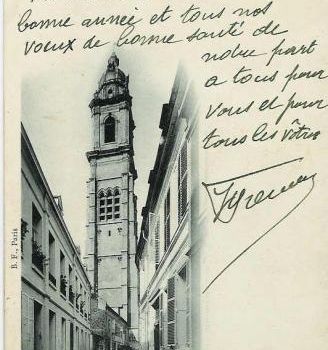 bonne année et tous nos
vœux de bonne santé de
notre part
a tous pour
vous et pour
tous les vôtres
B. F., Paris